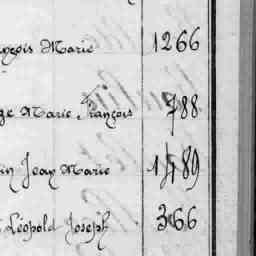 ançois Marie 1266
ze Marie François 788
in Jean Marie 1489
Léopold Joseph 366